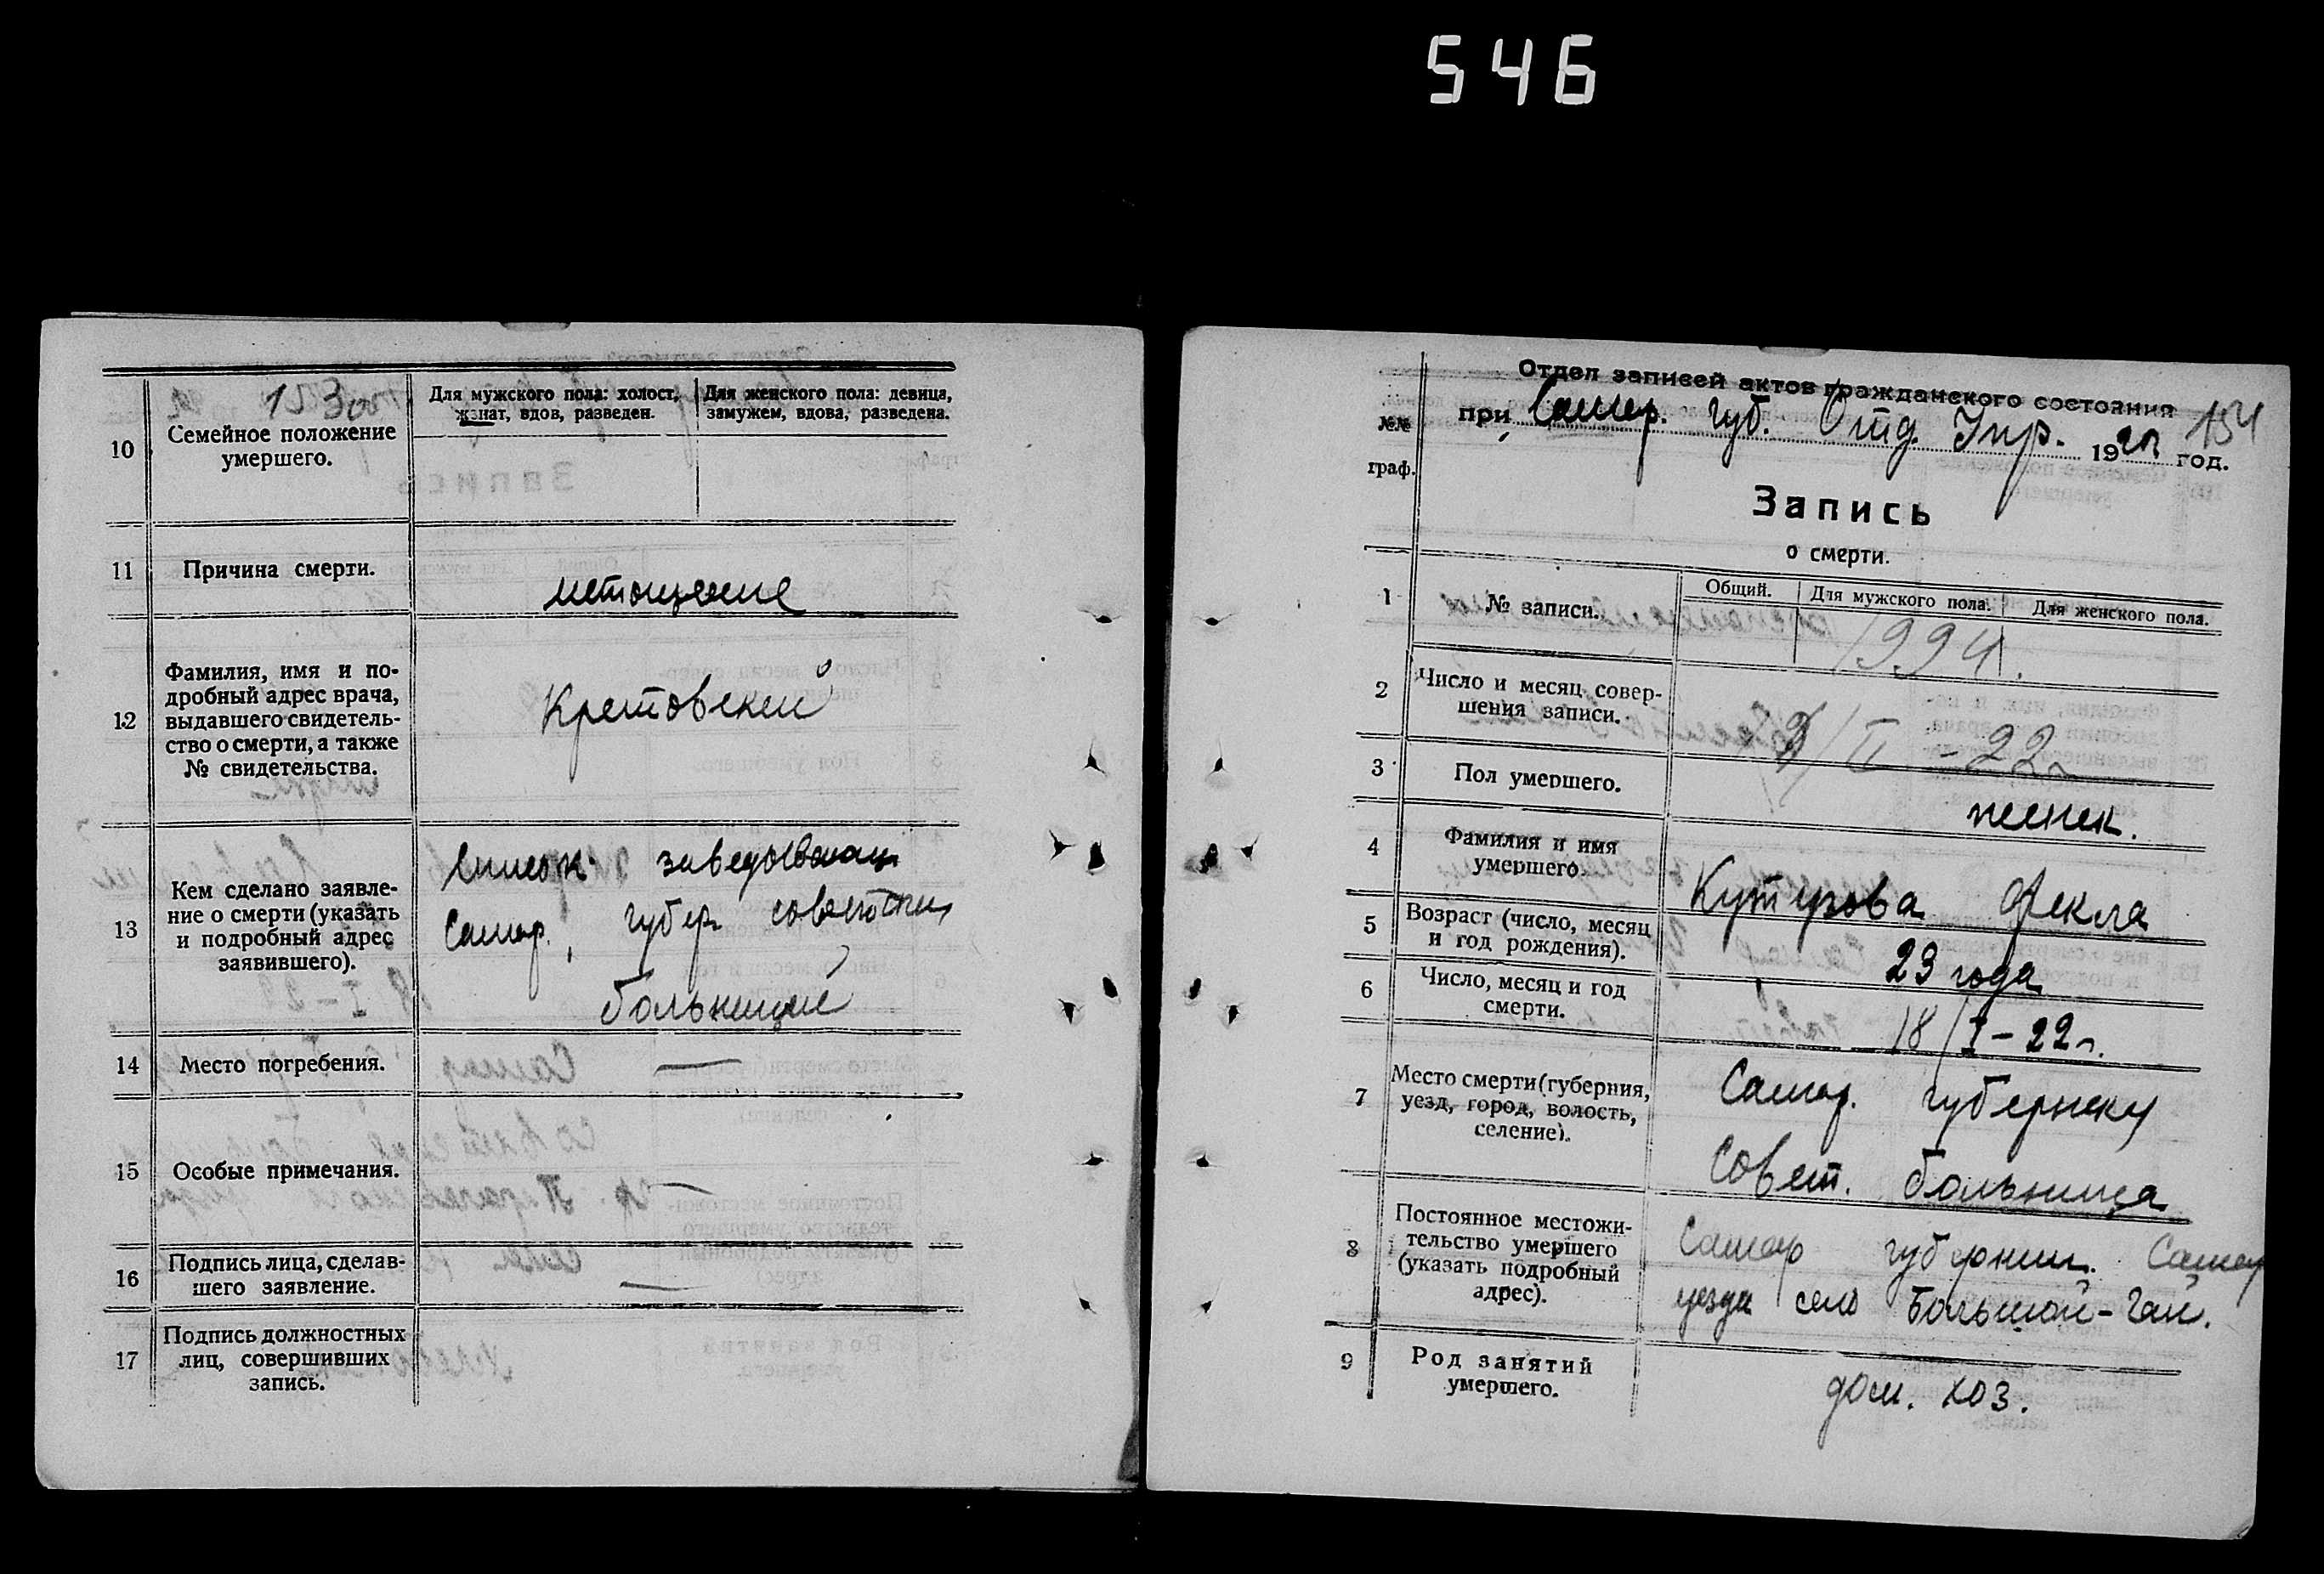 546
153об
10
Семейное положение
умершего.
Для мужского пола: холост,
женат, вдов, разведен.
Для женского пола: девица,
замужем, вдова, разведена.
11
Причина смерти.
истощение
12
Фамилия, имя и по-
дробный адрес врача,
выдавшего свидетель-
ство о смерти, а также
№ свидетельства.
Кретовский
13
Кем сделано заявле-
ние о смерти (указать
и подробный адрес
заявившего).
Список заведывающ
Самар. губер. советской
больницей
14
Место погребения.
—
15
Особые примечания.
—
16
Подпись лица, сделав-
шего заявление.
—
17
Подпись должностных
лиц, совершивших
запись.
154
Отдел записей актов гражданского состояния
при Самар. Губ. Отд. Упр. 1922 год.
№№
граф.
Запись
о смерти.
1
№ записи.
Общий.
Для мужского пола.
Для женского пола.
1994.
2
Число и месяц совер-
шения записи.
/II - 22г
3
Пол умершего.
женск.
4
Фамилия и имя
умершего.
Кутузова Фекла
5
Возраст (число, месяц
и год рождения).
23 года
6
Число, месяц и год
смерти.
18/I-22г.
7
Место смерти (губерния,
уезд, город, волость,
селение).
Самар. губернску
Совет. больница
8
Постоянное местожи-
тельство умершего
(указать подробный
адрес).
Самар губернии. Самар
уезда село Большой-Гай.
9
Род занятий
умершего.
дом. хоз.